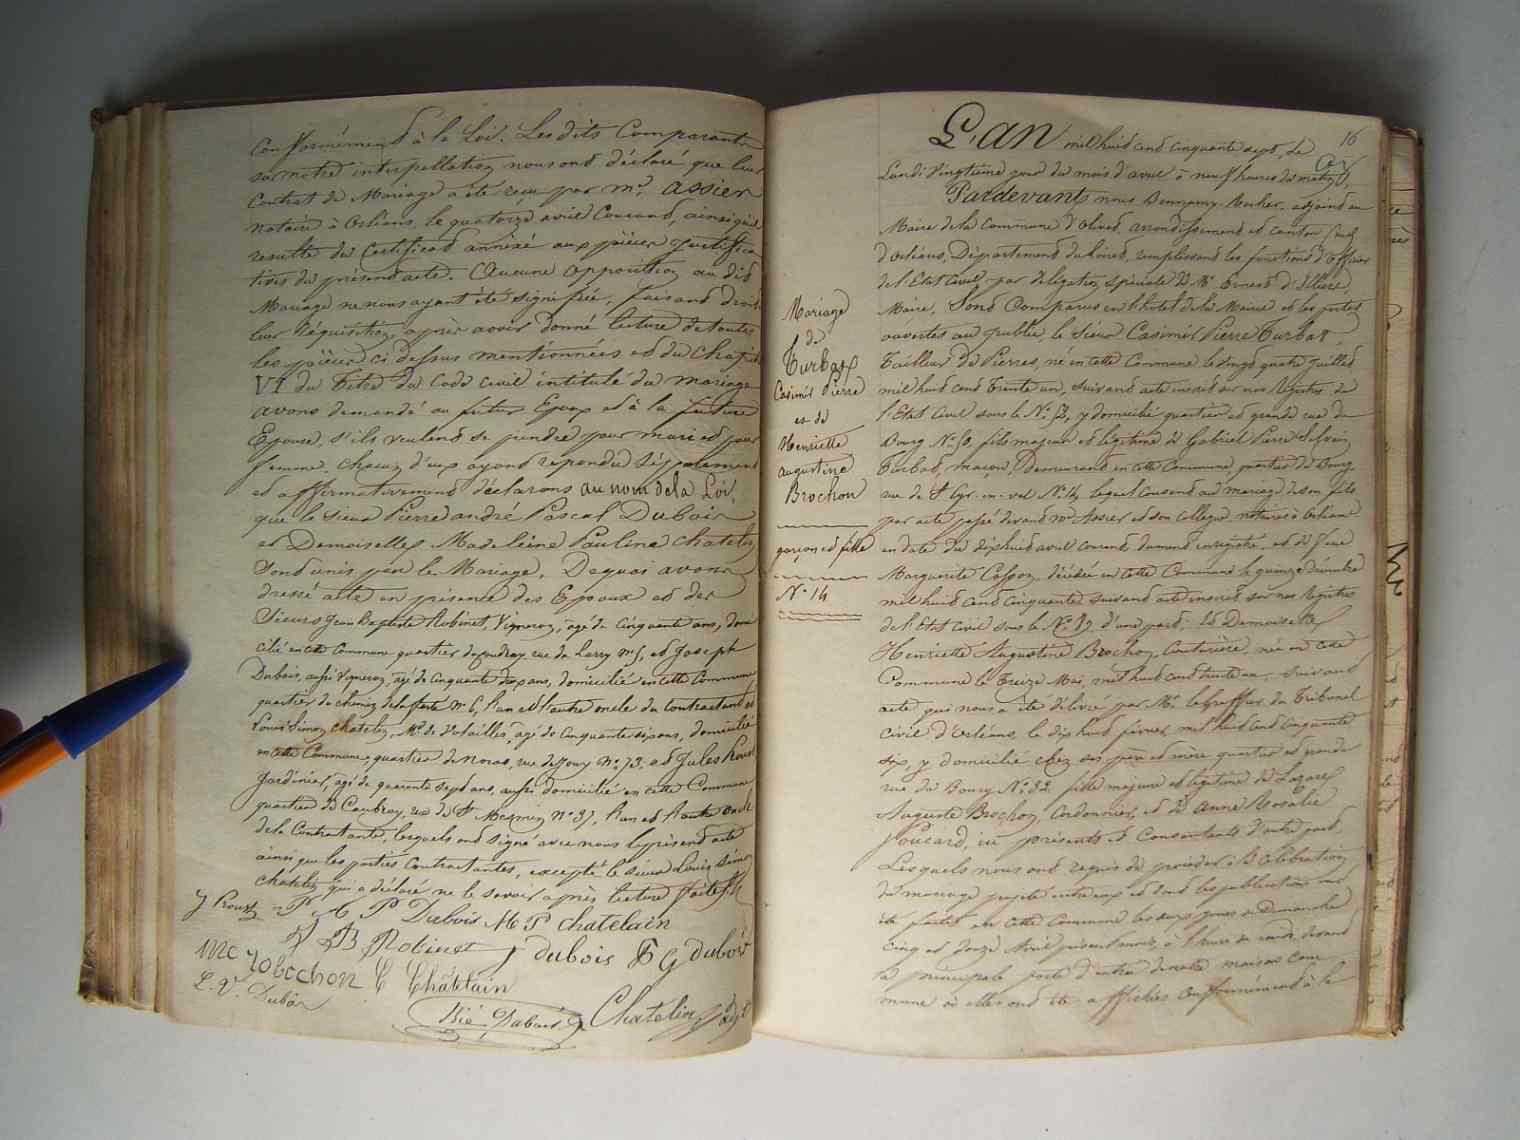 Conformément à la Loi. Lesdits Comparants
sur notre interpellation nous ont déclaré que leur
Contrat de Mariage a été reçu par Mᵉ. Assier
notaire à Orléans, le quatorze avril Courant, ainsi qu'il
resulte du Certificat annéxé aux pièces justifica
tives du présent acte. Aucune opposition au dit
Mariage ne nous ayant été signifiée, faisant droit
leur Réquisition, après avoir donné lecture de toutes
les pièces ci dessus mentionnées et du Chapitre
VI du Titre du Code Civil intitulé du mariage
avons demandé au futur Epoux et à la future
Epouse, s'ils veulent se prendre pour mari et pour
femme, chacun d'eux ayant repondu séparément
et affirmativement déclarons au nom de la Loi,
que le sieur Pierre andré Pascal Dubois
et Demoiselle Madeleine Pauline Chatelin
sont unis par le Mariage. De quoi avons
dressé acte en présence des Epoux et des
Sieurs Jean Baptiste Robinet, Vigneron, agé de cinquante ans, domi
cilié en cette Commune quartier du rue de Larry Nº 5, et Joseph
Dubois, aussi Vigneron, agé de Cinquante ans, domicilié en cette Commune
quartier du chemin de la ferté Nº 6, l'un et l'autre oncle du Contractant et
Louis Simon Chatelin, Mᵈ de Volailles, agé de Cinquante six ans, domicilié
en cette Commune, quartier de rue de Nº 73, et Jules Proust
Jardinier, agé de quarante sept ans, aussi domicilié en cette Commune
quartier de Caubray, rue de St Mesmin Nº 37, l'un et l'autre oncle
de la Contractante, lesquels ont signé avec nous le présent acte
ainsi que les parties Contractantes, excepté le sieur Louis Simon
Chatelin qui a déclaré ne le savoir après lecture faite
J Proust P A P Dubois M P Chatelain
J B Robinet J dubois F G dubois
C Chatelain
L. V. Dubois Dubois Chatelin
16
L'an mil huit cent cinquante sept, le
Lundi Vingtième jour du mois d'avril à neuf heures du matin,
Pardevant nous adjoint au
Maire de la Commune d'Olivet, arrondissement et canton Sud
d'Orléans, Département du Loiret, remplissant les fonctions d'officier
de l'Etat Civil, par délégation spéciale de Mʳ Ernest d'Illiers,
Maire, Sont Comparus en l'hotel de la Mairie et les portes
ouvertes au public, le Sieur Casimir Pierre Turbat,
Tailleur de Pierres, né en cette Commune le vingt quatre Juillet
mil huit cent Trente un, suivant acte inscrit sur nos Registres de
l'Etat Civil sous le Nº 52, y domicilié quartier et grande rue du
Bourg Nº 50, fils majeur et légitime de Gabriel Pierre Silvain
Turbat, maçon, Demeurant en cette Commune, quartier du Bourg
rue de St Cyr-en-val Nº 14, lequel consent au mariage de son fils
par acte passé devant Mᵉ Assier et son Collègue notaires à Orléans
en date du dix huit avril courant dument enregistré, et de feue
Marguerite décédée en cette Commune le quinze Décembre
mil huit cent cinquante suivant acte inscrit sur nos Registres
de l'Etat Civil sous le Nº 87, d'une part; Et Demoiselle
Henriette Augustine Brochon, Couturière, née en cette
Commune le Treize Mai, mil huit cent trente un, suivant
acte qui nous a été délivré par Mʳ le Greffier du Tribunal
Civil d'Orléans, le dix huit février mil huit cent cinquante
six, y domicilié chez ses père et mère quartier et grande
rue du Bourg Nº 32, fille majeure et légitime de Lazare
Auguste Brochon, Cordonnier, et de Anne Rosalie
Foucard, ici présents et Consentants d'autre part,
Lesquels nous ont requis de procéder à la Célébration
du mariage projeté entre eux et dont les publications ont
été faites en cette Commune les deux jours de Dimanche
cinq et douze Avril présent mois, à l'heure de midi, devant
la principale porte d'entrée de notre maison Com
mune où elles ont été affichées Conformément à la
Mariage
de
Turbat
Casimir Pierre
et de
Henriette
Augustine
Brochon
garçon et fille
Nº 14